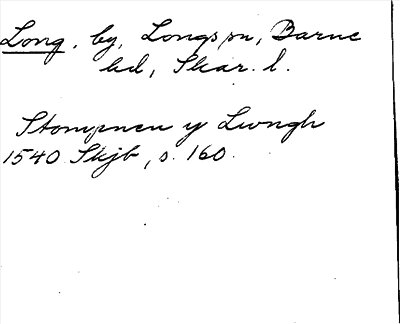 Long, by, Longs sn, Barne
hd, Skar. l.
Stompneu y Lwngh
1540 Skjb, s. 160.